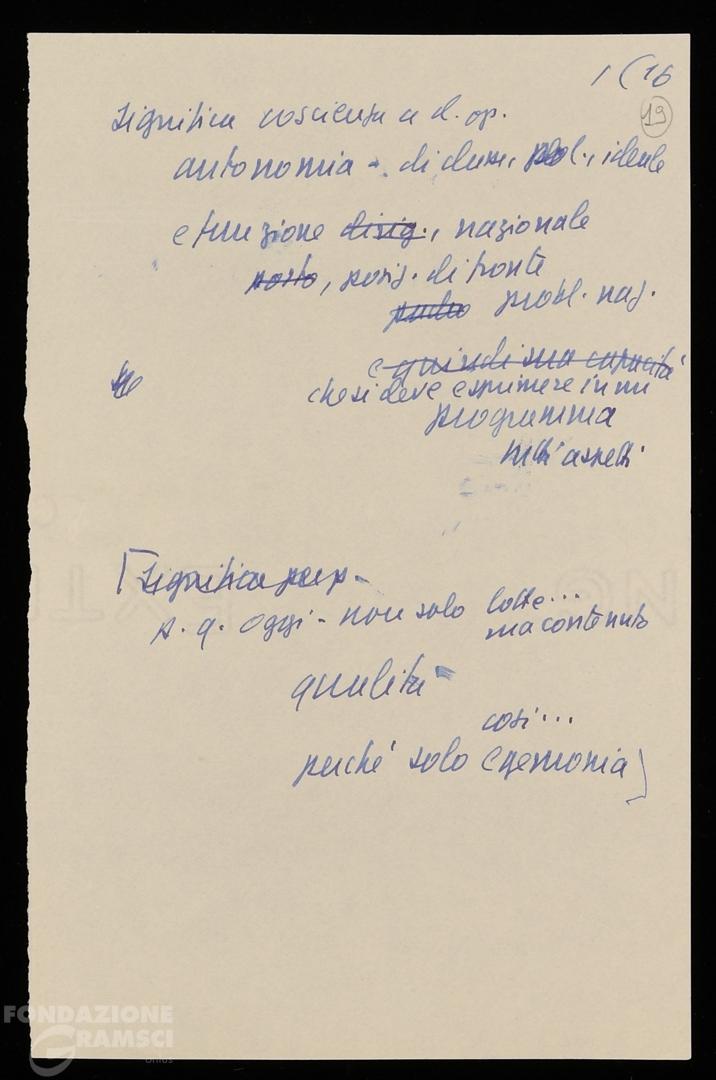 1 (16
19
significa coscienza a cl. op.
autonomia - di classe, pol., ideale
e funzione dirig., nazionale
posto, posiz. di fronte
probl. naz.
e quindi sua capacità
che si deve esprimere in un
programma
tutti aspetti
[significa perp-
p. q. oggi - non solo lotte...
ma contenuto
qualità
così...
perché solo egemonia]
FONDAZIONE
GRAMSCI
onlus